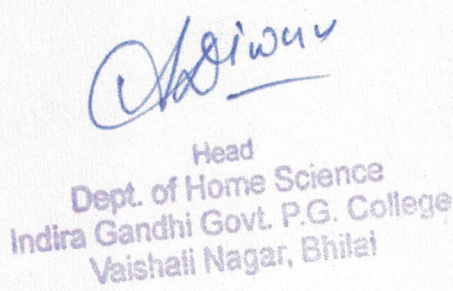 Diwan
Head
Dept. of Home Science
Indira Gandhi Govt. P.G. College
Vaishali Nagar, Bhilai